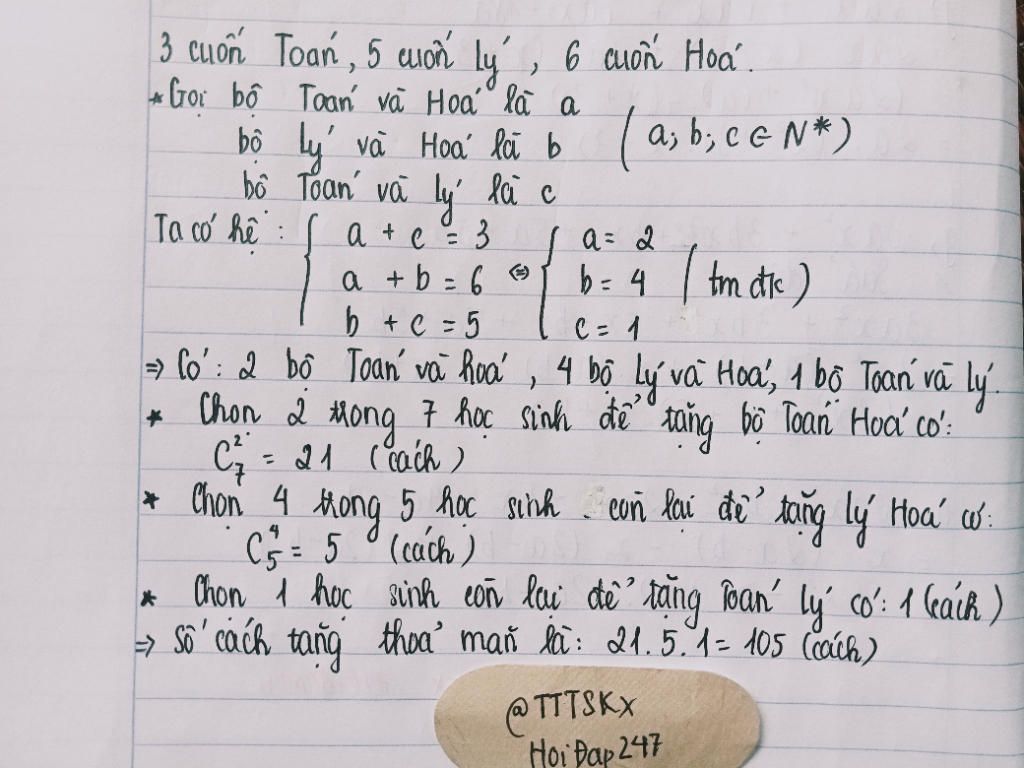 3 cuốn Toán, 5 cuốn lý, 6 cuốn Hoá.
* Gọi bộ Toán và Hoá là a
bộ lý và Hoá là b (a; b; c ∈ N*)
bộ Toán và lý là c
Ta có hệ: { a + c = 3
a + b = 6
b + c = 5 ⇔ { a = 2
b = 4
c = 1 (tm đk)
⇒ Có: 2 bộ Toán và hoá, 4 bộ lý và Hoá, 1 bộ Toán và lý.
* Chọn 2 trong 7 học sinh để tặng bộ Toán Hoá có:
C₇² = 21 (cách)
* Chọn 4 trong 5 học sinh còn lại để tặng lý Hoá có:
C₅⁴ = 5 (cách)
* Chọn 1 học sinh còn lại để tặng Toán lý có: 1 (cách)
⇒ Số cách tặng thoả mãn là: 21.5.1 = 105 (cách)
@TTTSKx
HoiĐap247